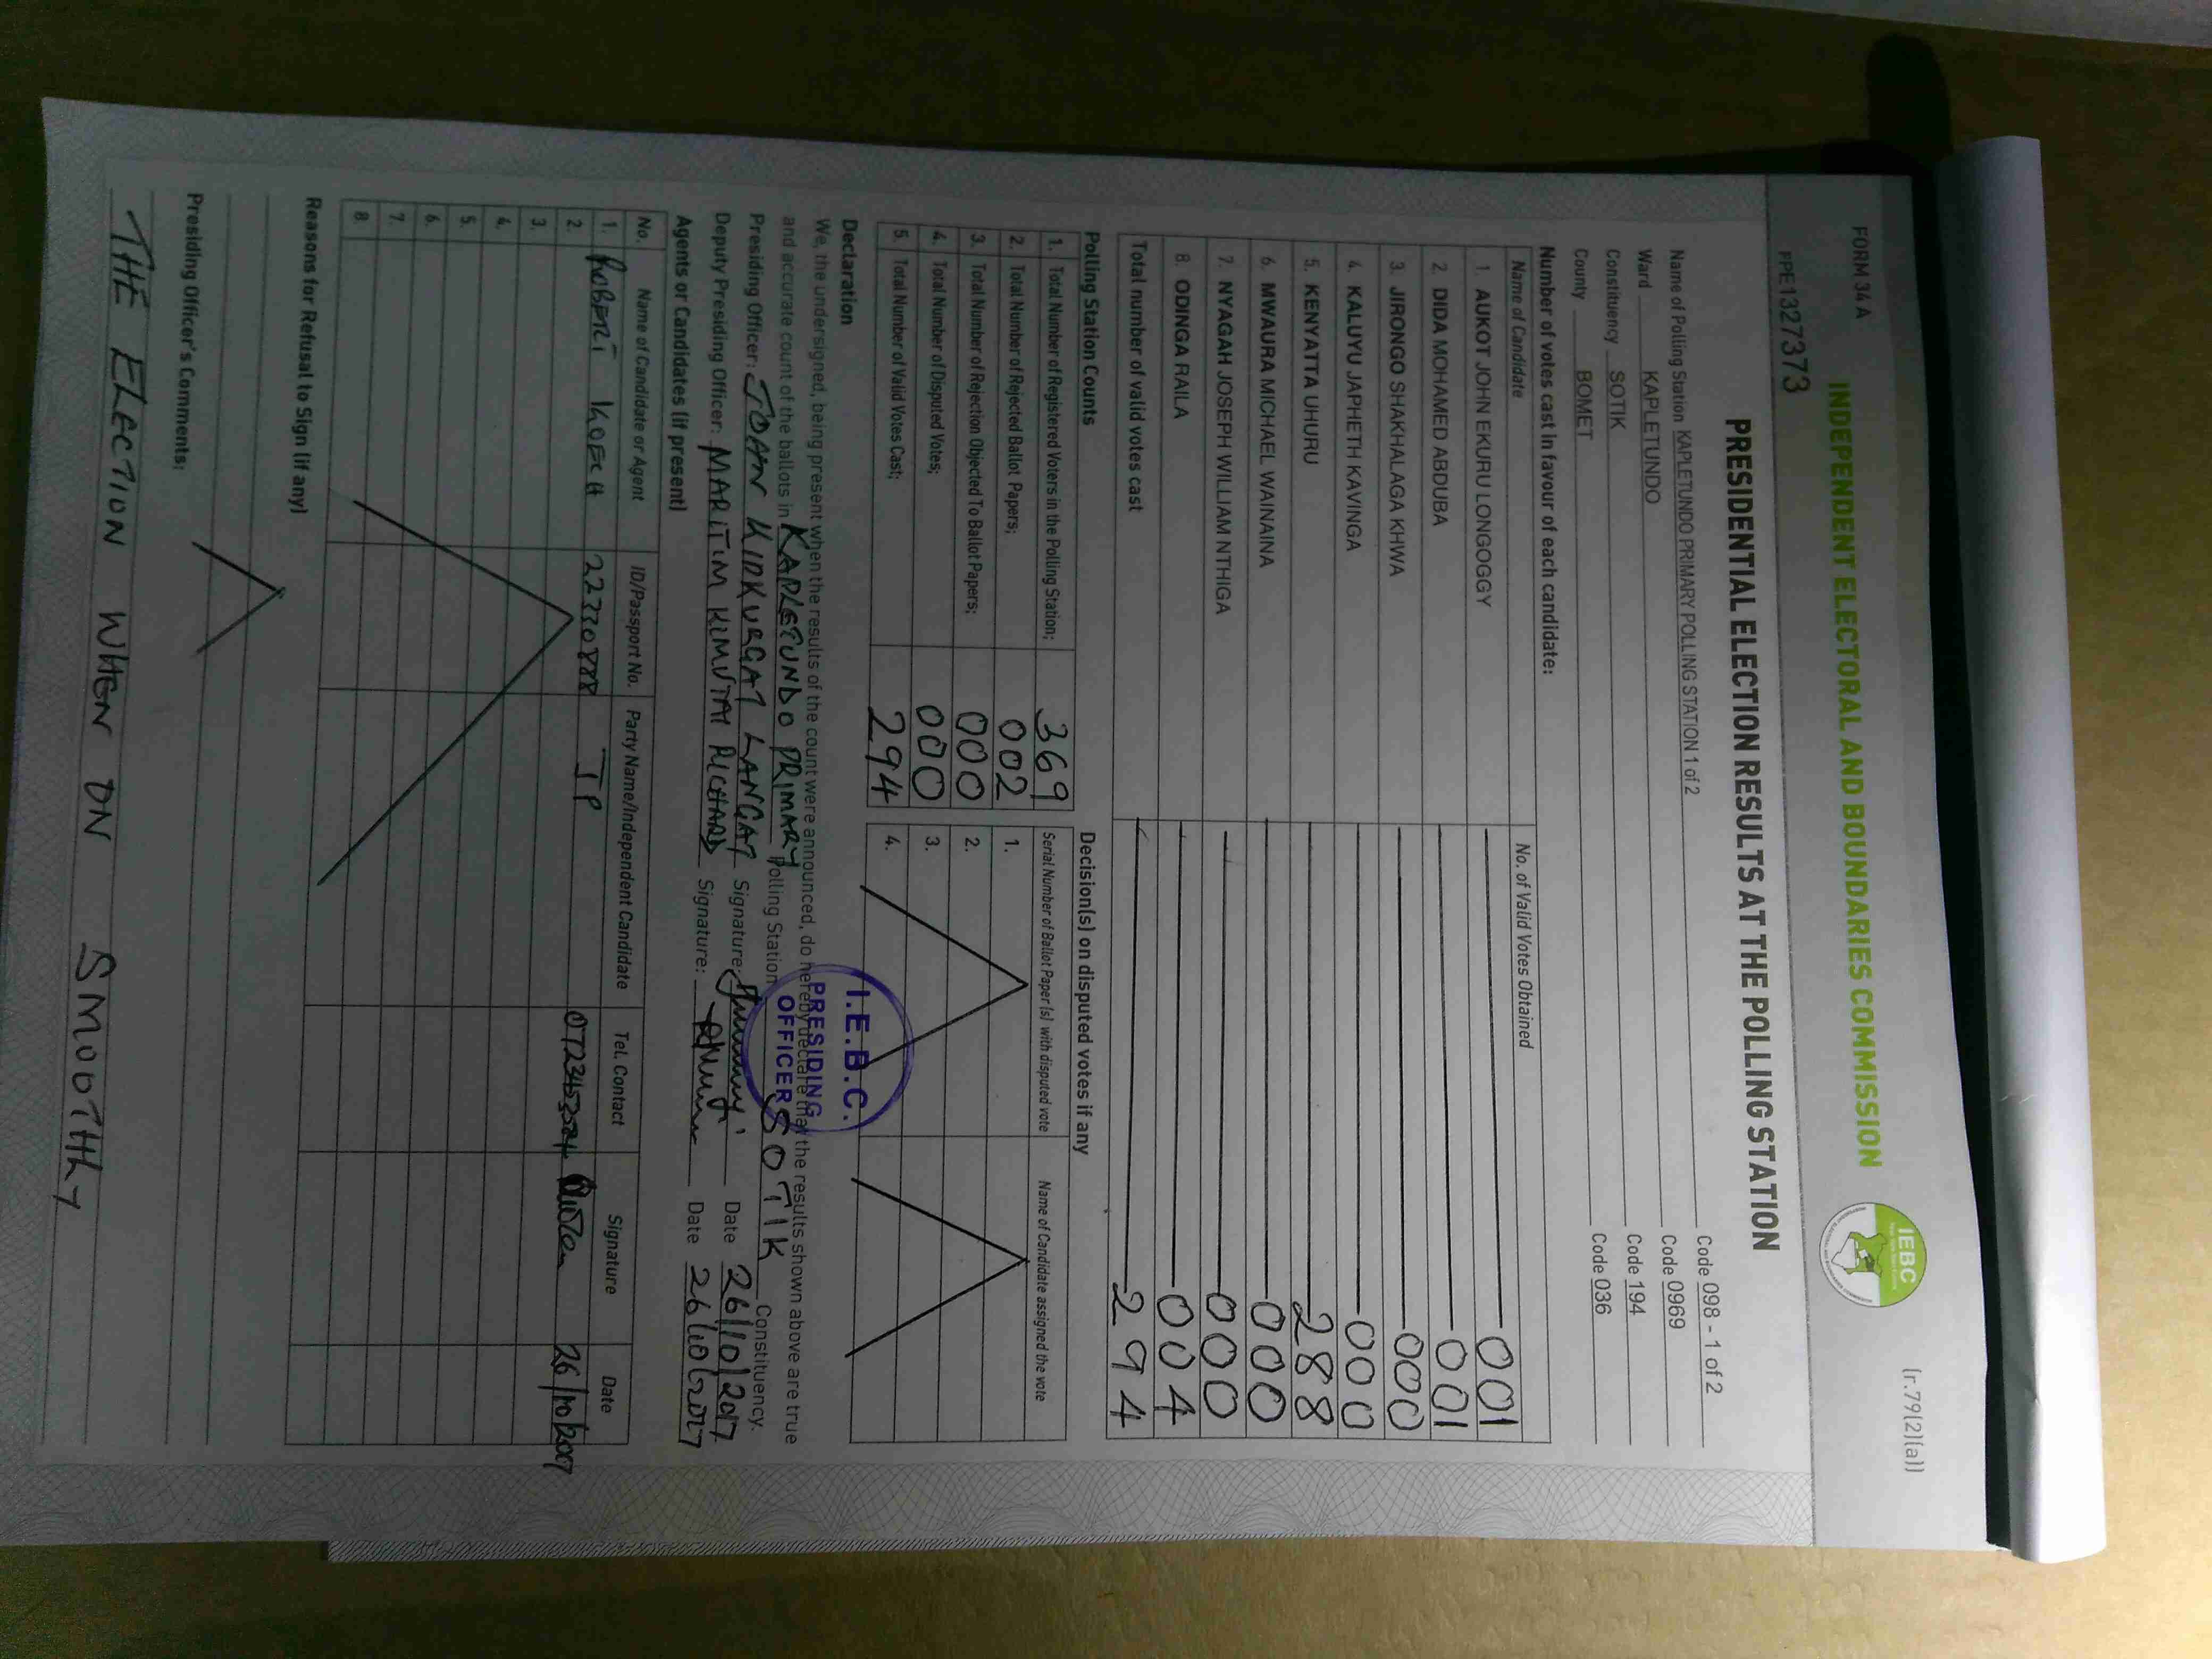 FORM 34A
(r.79(2)(a))
INDEPENDENT ELECTORAL AND BOUNDARIES COMMISSION
IEBC
PPE1327373
PRESIDENTIAL ELECTION RESULTS AT THE POLLING STATION
Name of Polling Station KAPLETUNDO PRIMARY POLLING STATION 1 of 2 Code 098 - 1 of 2
Ward KAPLETUNDO Code 0969
Constituency SOTIK Code 194
County BOMET Code 036
Number of votes cast in favour of each candidate:
Name of Candidate No. of Valid Votes Obtained
1. AUKOT JOHN EKURU LONGOGGY 001
2. DIDA MOHAMED ABDUBA 001
3. JIRONGO SHAKHALAGA KHWA 000
4. KALUYU JAPHETH KAVINGA 000
5. KENYATTA UHURU 288
6. MWAURA MICHAEL WAINAINA 000
7. NYAGAH JOSEPH WILLIAM NTHIGA 000
8. ODINGA RAILA 004
Total number of valid votes cast 294
Polling Station Counts
1. Total Number of Registered Voters in the Polling Station: 369
2. Total Number of Rejected Ballot Papers; 002
3. Total Number of Rejection Objected To Ballot Papers; 000
4. Total Number of Disputed Votes; 000
5. Total Number of Valid Votes Cast; 294
Decision(s) on disputed votes if any
Serial Number of Ballot Paper (s) with disputed vote Name of Candidate assigned the vote
1.
2.
3.
4.
Declaration
We, the undersigned, being present when the results of the count were announced, do hereby declare that the results shown above are true
and accurate count of the ballots in KAPLETUNDO PRIMARY Polling Station SOTIK Constituency.
I.E.B.C.
PRESIDING
OFFICER
Presiding Officer: JOAN KIPKURGAT LANGAT Signature: Date 26/10/2017
Deputy Presiding Officer: MARITIM KIMUTAI RICHARD Signature: Date 26/10/2017
Agents or Candidates (if present)
No. Name of Candidate or Agent ID/Passport No. Party Name/Independent Candidate Tel. Contact Signature Date
1. ROBERT KOECH 22330888 JP 26/10/2017
2.
3.
4.
5.
6.
7.
8.
Reasons for Refusal to Sign (if any)
Presiding Officer's Comments:
THE ELECTION WHEN ON SMOOTHLY